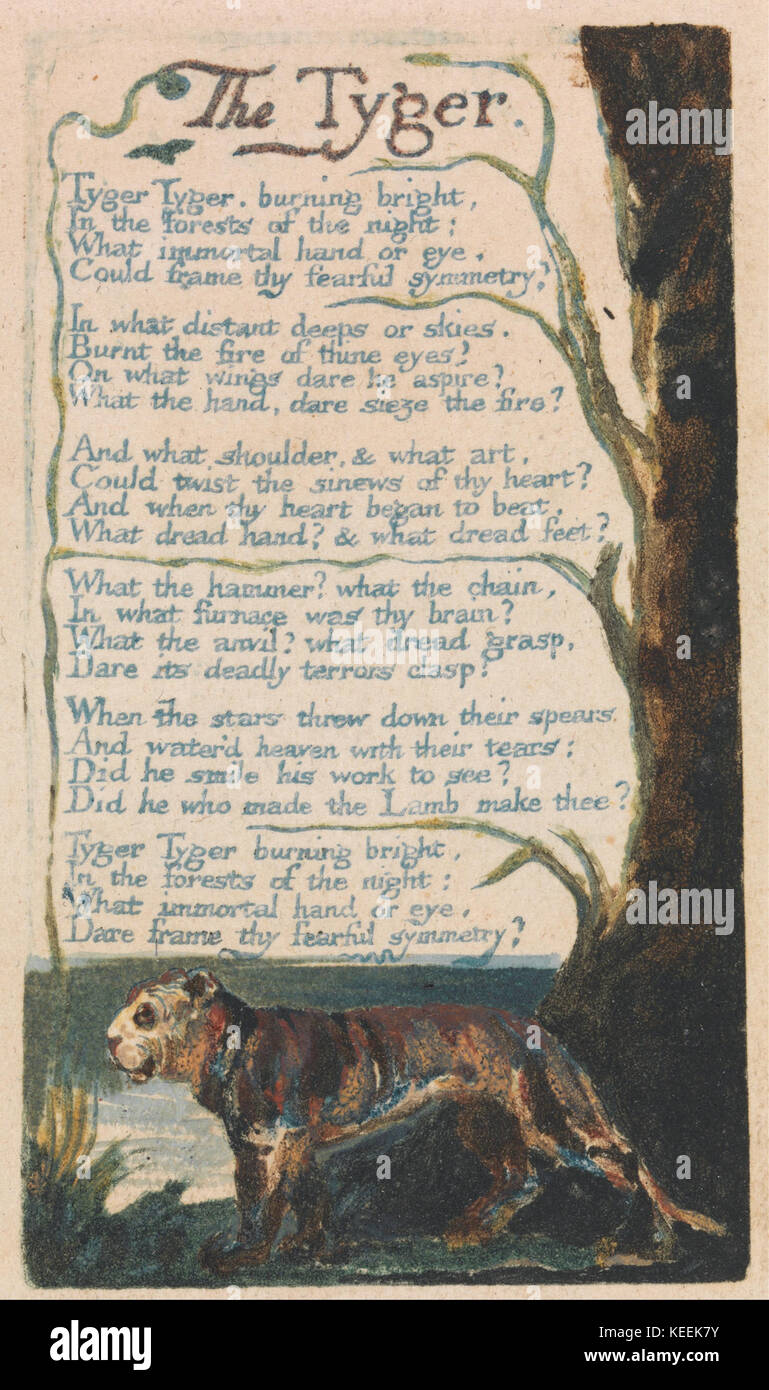 The Tyger.
Tyger Tyger. burning bright,
In the forests of the night:
What immortal hand or eye,
Could frame thy fearful symmetry?
In what distant deeps or skies.
Burnt the fire of thine eyes?
On what wings dare he aspire?
What the hand, dare sieze the fire?
And what shoulder, & what art,
Could twist the sinews of thy heart?
And when thy heart began to beat,
What dread hand? & what dread feet?
What the hammer? what the chain,
In what furnace was thy brain?
What the anvil? what dread grasp,
Dare its deadly terrors clasp?
When the stars threw down their spears
And water'd heaven with their tears:
Did he smile his work to see?
Did he who made the Lamb make thee?
Tyger Tyger burning bright,
In the forests of the night:
What immortal hand or eye,
Dare frame thy fearful symmetry?
alamy
alamy
alamy
a
a
a
a
a
alamy
Image ID: KEEK7Y
www.alamy.com